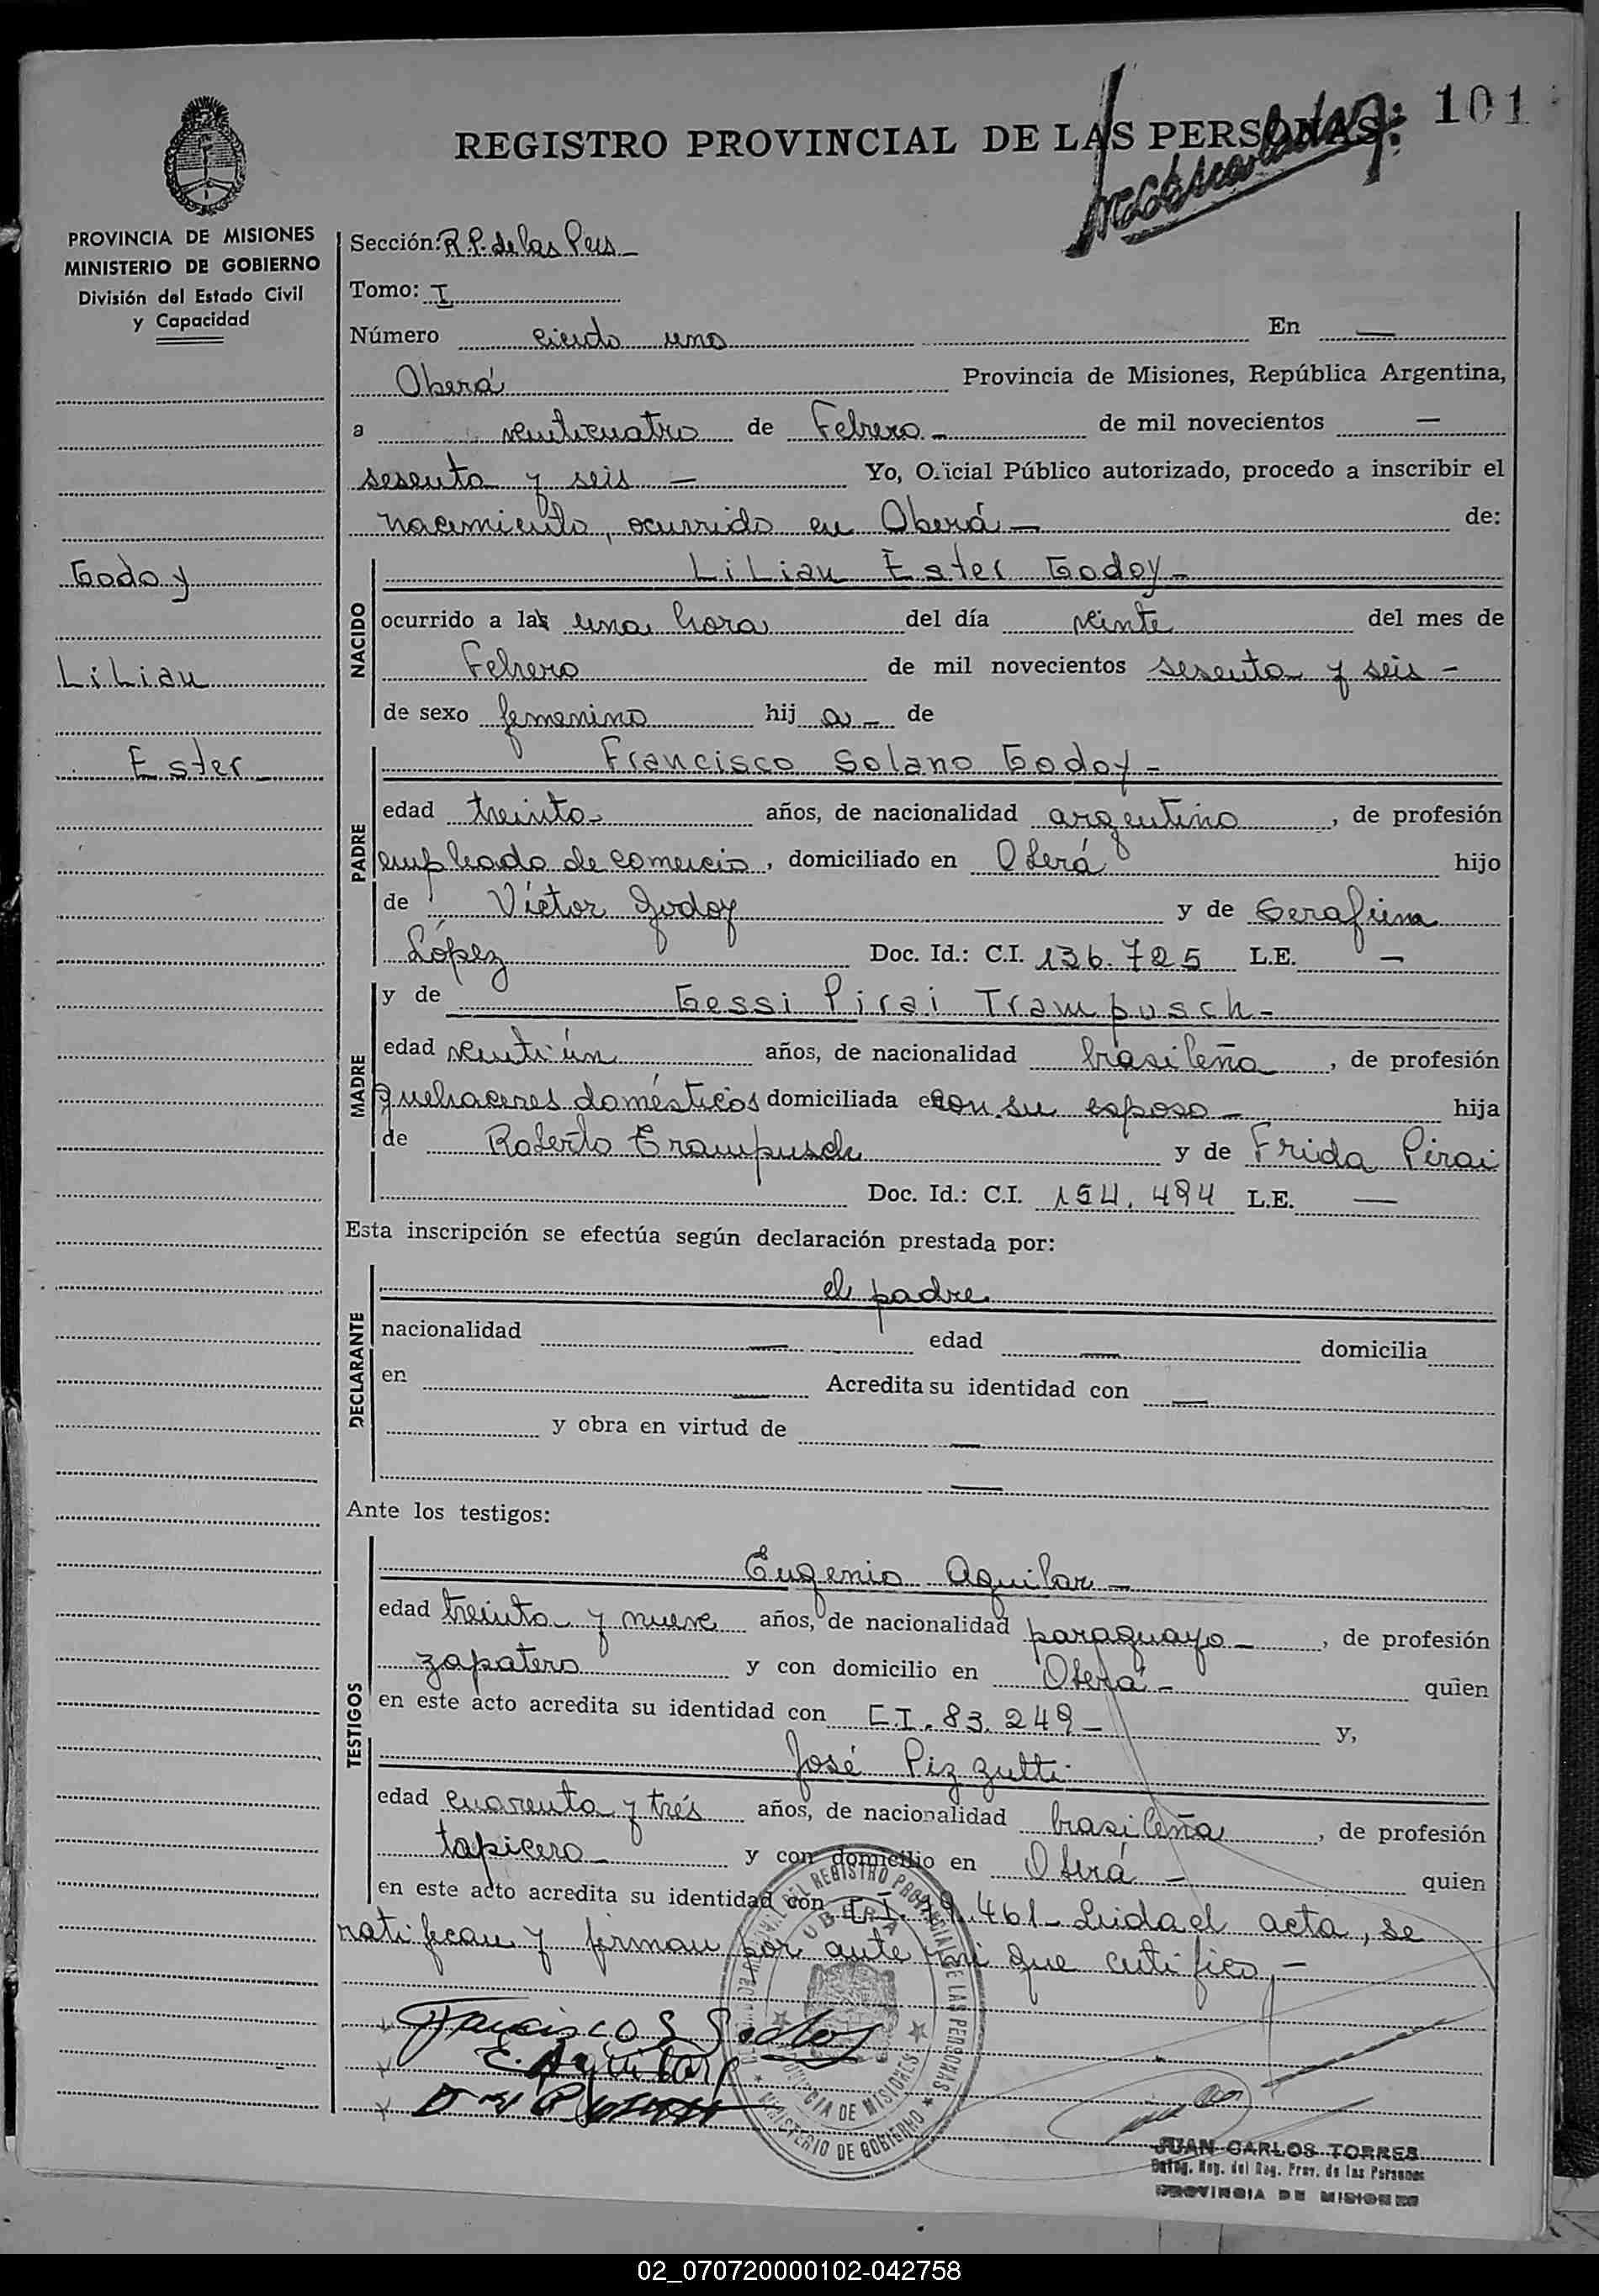 101
REGISTRO PROVINCIAL DE LAS PERSONAS
PROVINCIA DE MISIONES
MINISTERIO DE GOBIERNO
División del Estado Civil
y Capacidad
Godoy
Lilian
Ester
Sección: R.P. de las Pers
Tomo: I
Número ciento uno En —
Oberá Provincia de Misiones, República Argentina,
a veinticuatro de Febrero - de mil novecientos —
sesenta y seis — Yo, Oficial Público autorizado, procedo a inscribir el
nacimiento, ocurrido en Oberá — de:
NACIDO
Lilian Ester Godoy -
ocurrido a las una hora del día veinte del mes de
Febrero de mil novecientos sesenta y seis -
de sexo femenino hij a - de
PADRE
Francisco Solano Godoy -
edad treinta - años, de nacionalidad argentino, de profesión
empleado de comercio, domiciliado en Oberá hijo
de Víctor Godoy y de Serafina
López Doc. Id.: C.I. 136.725 L.E. —
MADRE
y de Gessi Pirai Trampusch -
edad veintiún años, de nacionalidad brasileña, de profesión
quehaceres domésticos domiciliada con su esposo - hija
de Roberto Trampusch y de Frida Pirai
Doc. Id.: C.I. 154.494 L.E. —
Esta inscripción se efectúa según declaración prestada por:
DECLARANTE
el padre
nacionalidad — edad — domicilia
en — Acredita su identidad con —
y obra en virtud de —
—
Ante los testigos:
TESTIGOS
Eugenio Aguilar -
edad treinta y nueve años, de nacionalidad paraguayo -, de profesión
zapatero y con domicilio en Oberá - quien
en este acto acredita su identidad con C.I. 83.249 - y,
José Pizzutti -
edad cuarenta y trés años, de nacionalidad brasileña, de profesión
tapicero - y con domicilio en Oberá - quien
en este acto acredita su identidad con C.I. 79.461 - Leida el acta, se
ratifican y firman por ante mi que certifico, -
Francisco S Godoy
E. Aguilar
REGISTRO PROVINCIAL DE LAS PERSONAS
OBERA
PROVINCIA DE MISIONES
MINISTERIO DE GOBIERNO
JUAN CARLOS TORRES
del Reg. Prov. de las Personas
PROVINCIA DE MISIONES
02_070720000102-042758